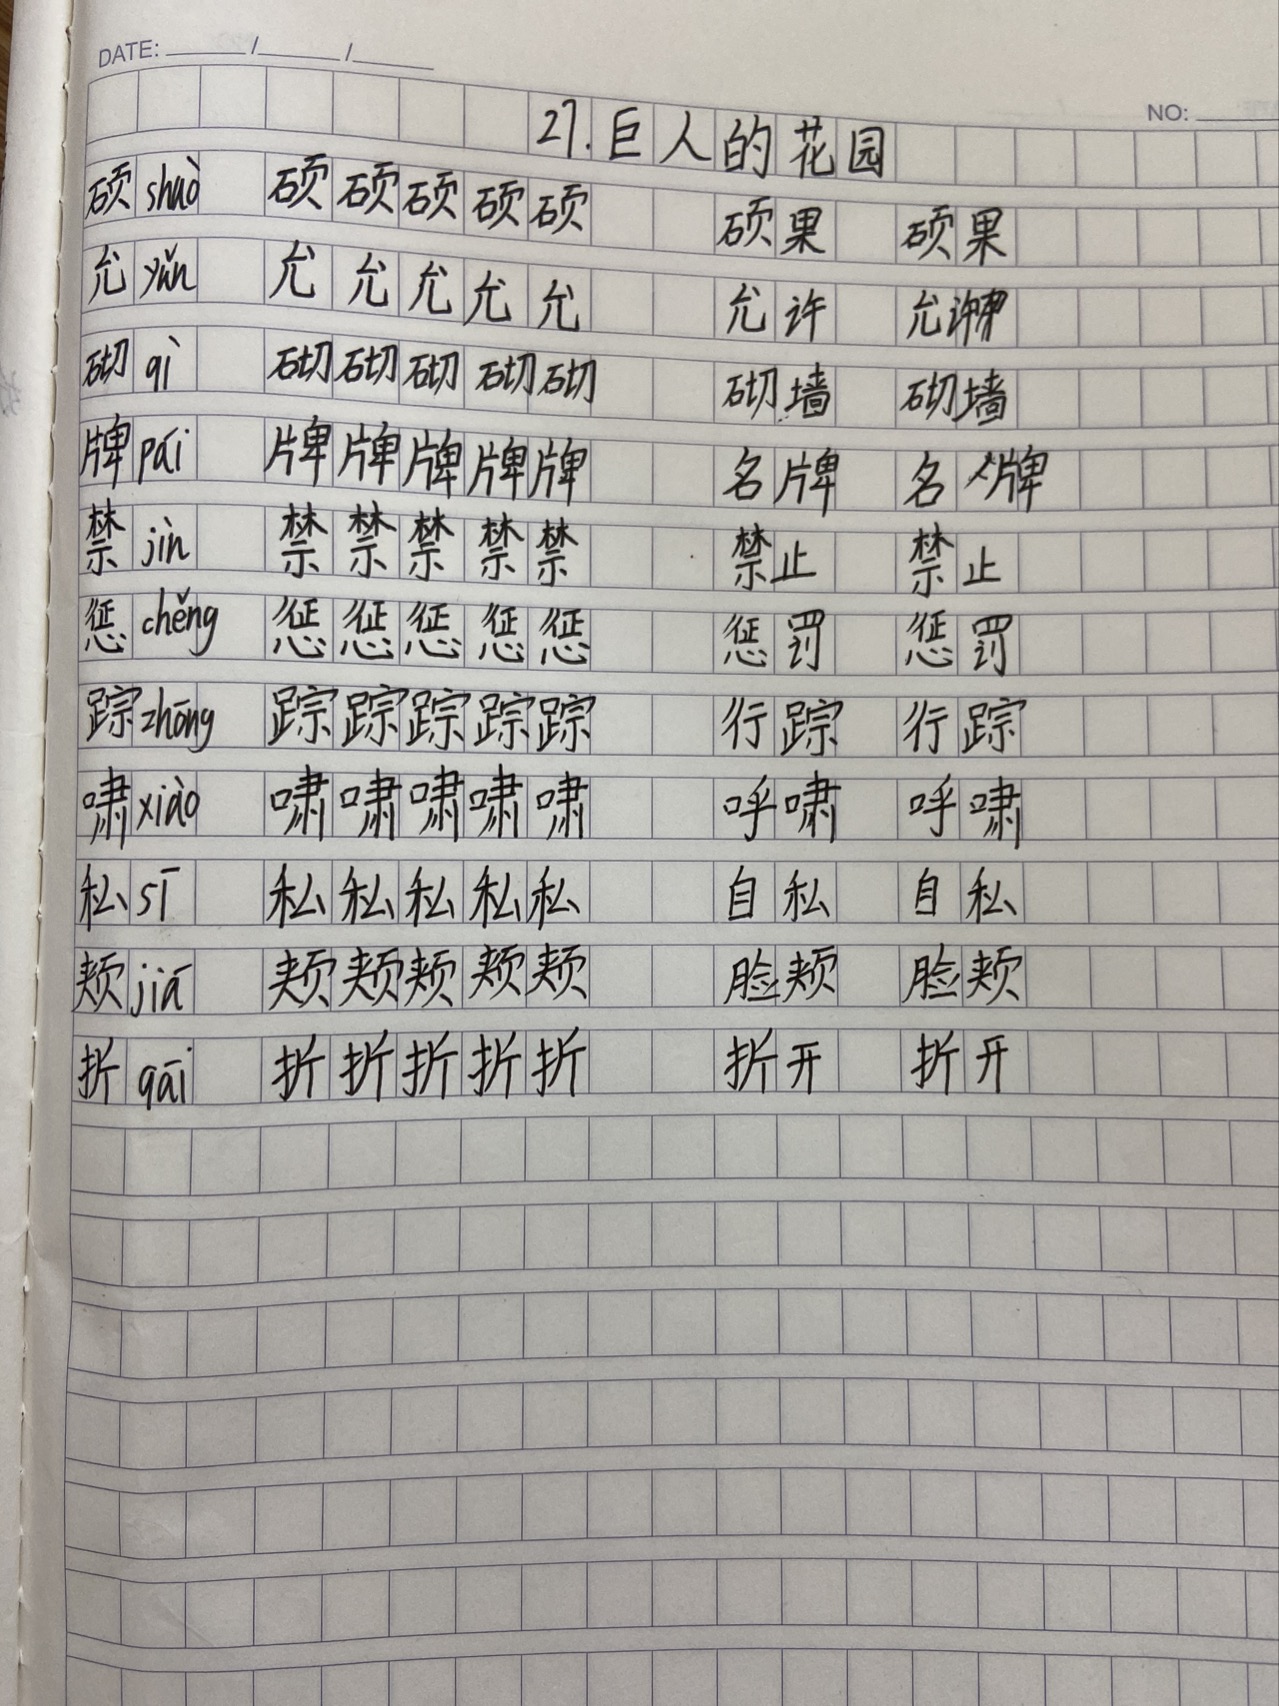 DATE: / /
NO:
27.巨人的花园
硕 shuò 硕 硕 硕 硕 硕 硕果 硕果
允 yǔn 允 允 允 允 允 允许 允许
砌 qì 砌 砌 砌 砌 砌 砌墙 砌墙
牌 pái 牌 牌 牌 牌 牌 名牌 名牌
禁 jìn 禁 禁 禁 禁 禁 禁止 禁止
惩 chěng 惩 惩 惩 惩 惩 惩罚 惩罚
踪 zhōng 踪 踪 踪 踪 踪 行踪 行踪
啸 xiào 啸 啸 啸 啸 啸 呼啸 呼啸
私 sī 私 私 私 私 私 自私 自私
颊 jiá 颊 颊 颊 颊 颊 脸颊 脸颊
折 qāi 折 折 折 折 折 折开 折开